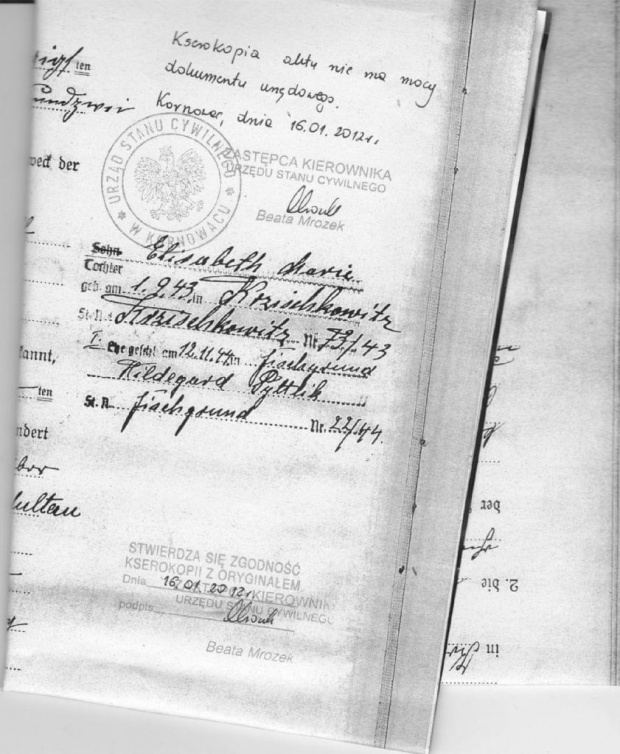 Kserokopia aktu nie ma mocy
dokumentu urzędowego.
Kornowac, dnia 16.01.2012r.
URZĄD STANU CYWILNEGO
W KORNOWACU
ZASTĘPCA KIEROWNIKA
URZĘDU STANU CYWILNEGO
Beata Mrozek
ten
weck der
Sohn Elisabeth Marie
Tochter
geb. am 1.9.43 in Krzischkowitz
St. A. Krzischkowitz Nr. 73/43
I. Ehe geschl. am 12.11.44 in Fischgrund
Hildegard Pyttlik
St. A. Fischgrund Nr. 22/44
kannt,
ten
ndert
bor
STWIERDZA SIĘ ZGODNOŚĆ
KSEROKOPII Z ORYGINAŁEM
Dnia 16.01.2012r.
ZASTĘPCA KIEROWNIKA
URZĘDU STANU CYWILNEGO
podpis
Beata Mrozek
der
2. die
in